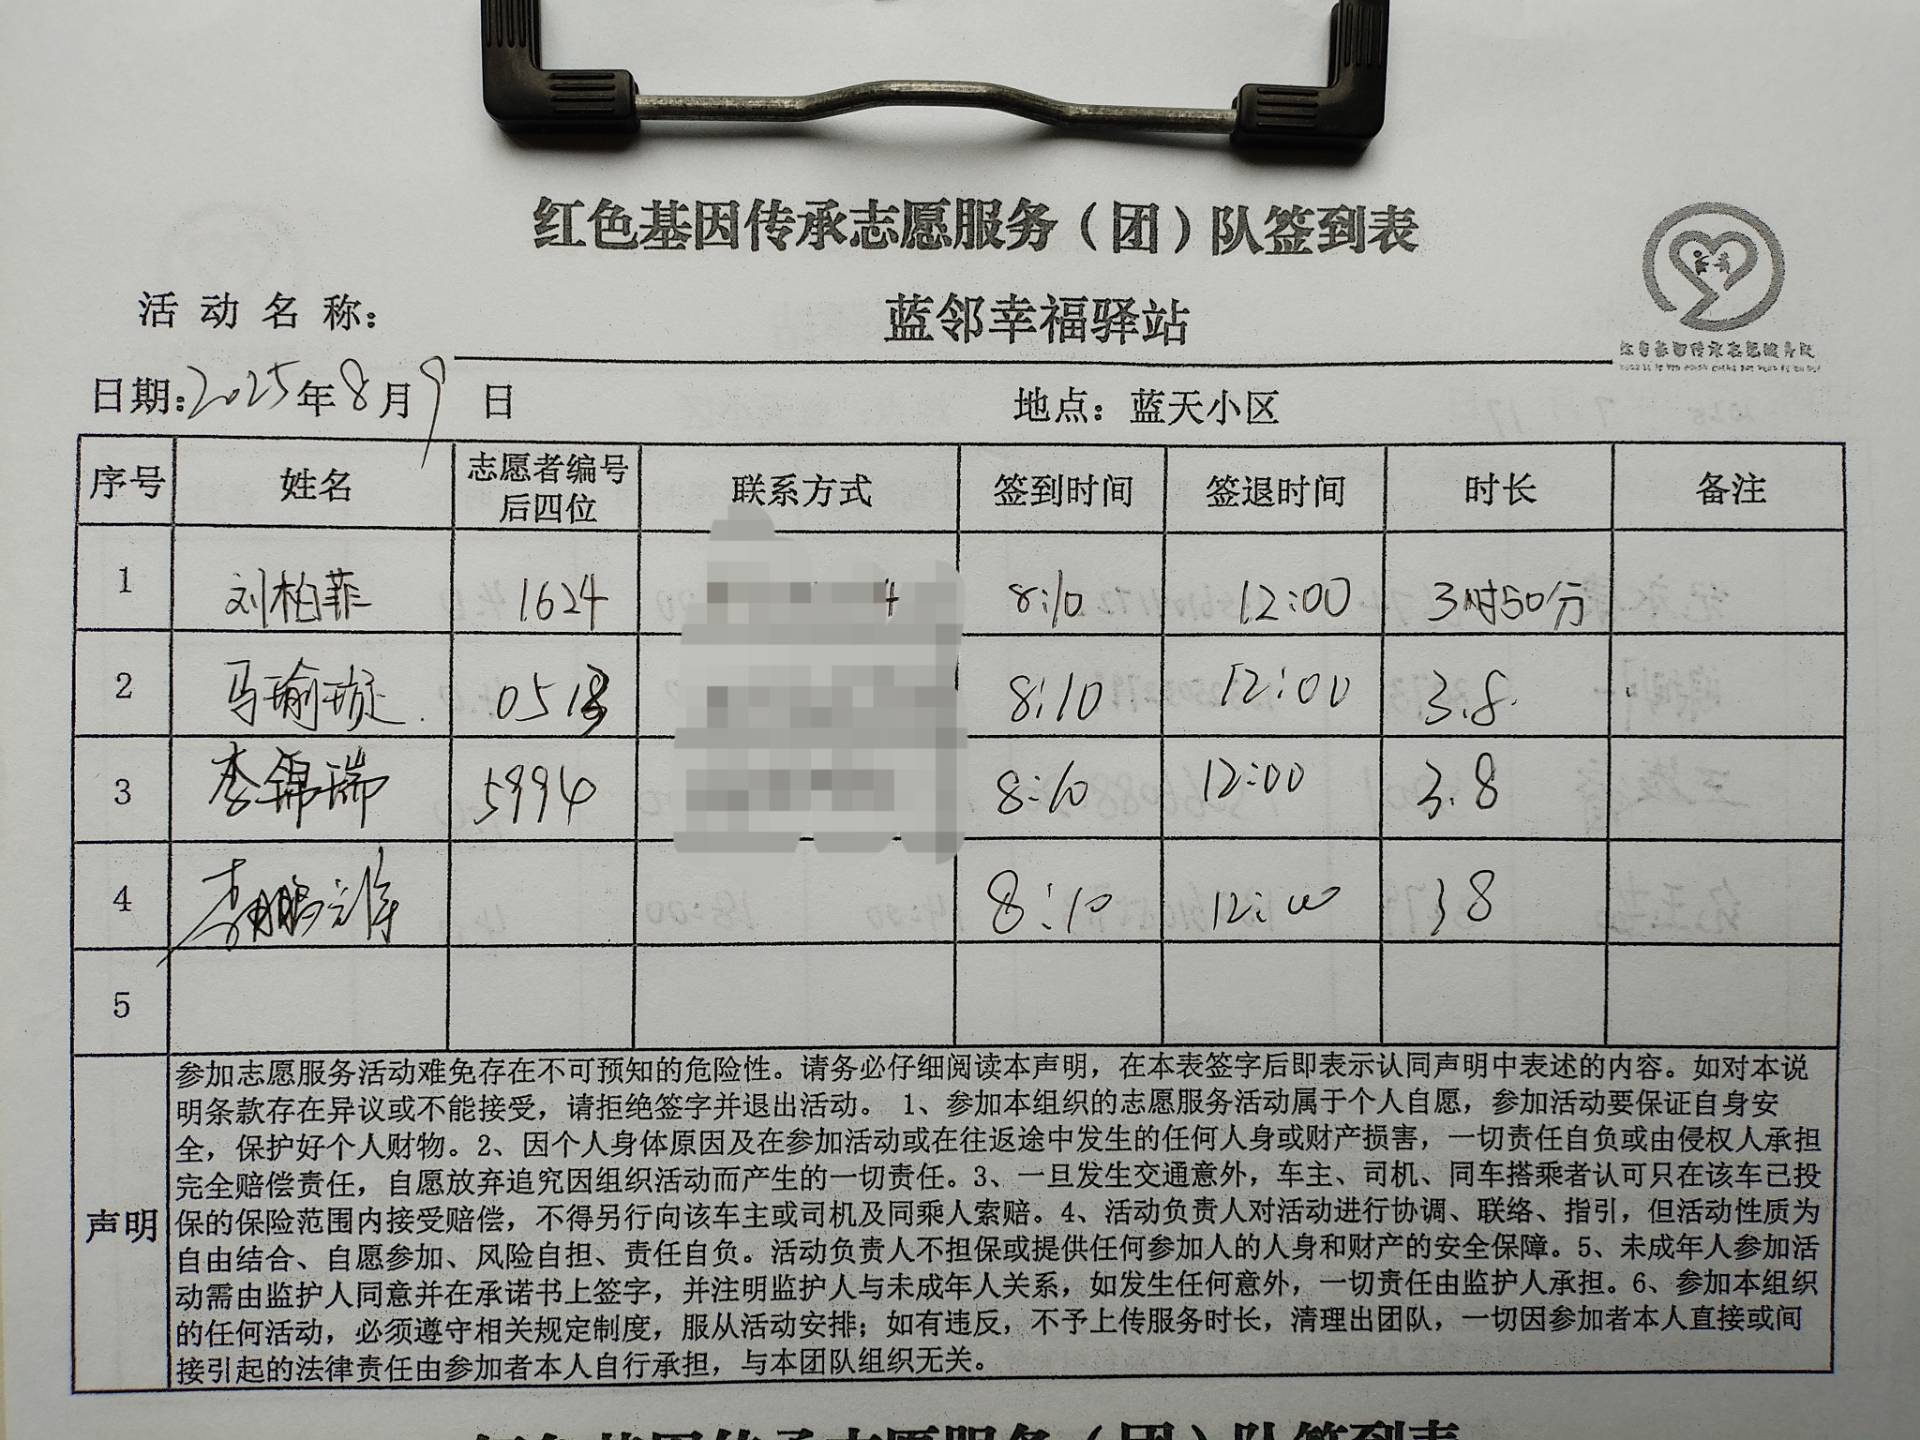 红色基因传承志愿服务（团）队签到表
活动名称： 蓝邻幸福驿站
日期：2025年8月9日 地点：蓝天小区
序号 姓名 志愿者编号后四位 联系方式 签到时间 签退时间 时长 备注
1 刘柏菲 1624 4 8:10 12:00 3时50分
2 马瑜璇 051 8:10 12:00 3.8
3 李锦瑞 5994 8:10 12:00 3.8
4 李鹏 8:10 12:00 38
5
声明
参加志愿服务活动难免存在不可预知的危险性。请务必仔细阅读本声明，在本表签字后即表示认同声明中表述的内容。如对本说
明条款存在异议或不能接受，请拒绝签字并退出活动。 1、参加本组织的志愿服务活动属于个人自愿，参加活动要保证自身安
全，保护好个人财物。2、因个人身体原因及在参加活动或在往返途中发生的任何人身或财产损害，一切责任自负或由侵权人承担
完全赔偿责任，自愿放弃追究因组织活动而产生的一切责任。3、一旦发生交通意外，车主、司机、同车搭乘者认可只在该车已投
保的保险范围内接受赔偿，不得另行向该车主或司机及同乘人索赔。4、活动负责人对活动进行协调、联络、指引，但活动性质为
自由结合、自愿参加、风险自担、责任自负。活动负责人不担保或提供任何参加人的人身和财产的安全保障。5、未成年人参加活
动需由监护人同意并在承诺书上签字，并注明监护人与未成年人关系，如发生任何意外，一切责任由监护人承担。6、参加本组织
的任何活动，必须遵守相关规定制度，服从活动安排；如有违反，不予上传服务时长，清理出团队，一切因参加者本人直接或间
接引起的法律责任由参加者本人自行承担，与本团队组织无关。
红色基因传承志愿服务（团）队签到表